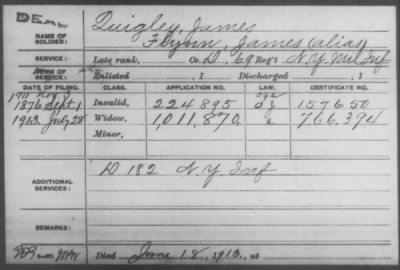 DEAL
NAME OF SOLDIER: Quigley, James
Flynn, James (alias)
SERVICE: Late rank, Co. D, 69 Reg't N.Y. Mil Inf
TERM OF SERVICE: Enlisted , 1 Discharged , 1
DATE OF FILING. CLASS. APPLICATION NO. LAW. CERTIFICATE NO.
1876 Sept 1 Invalid, 224895 157650
1913 July 28 Widow, 1,011,870 766,394
Minor,
ADDITIONAL SERVICES: D 182 N.Y. Inf
REMARKS:
Died June 18, 1913, at